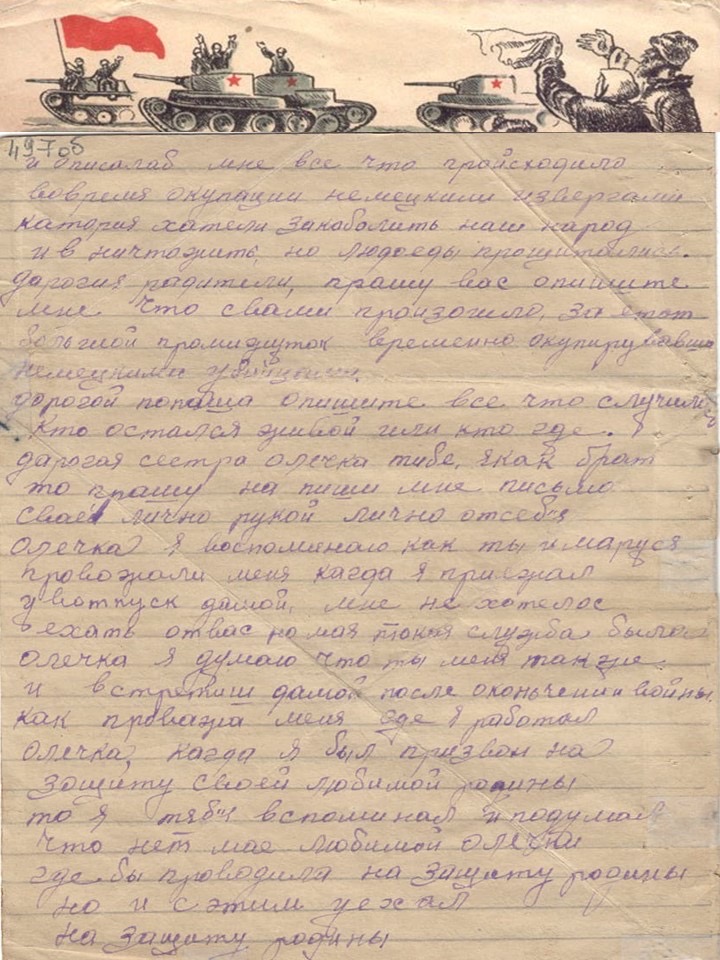 497об
и описалаб мне все что происходило
вовремя окупации немецкими извергами
катория хатели закабалить наш народ
и в ничтожить, но людоеды прощитались.
дарогия радители, прашу вас опишите
мне что свами произошло, за етот
большой промижуток временно окупирувавши
немецкими убийцами.
дорогой попаша опишите все что случилось
кто остался живой или кто где.
дарогая сестра олечка тибе, якак брат
то прашу на пиши мне письмо
своей лично рукой лично отсебя
олечка я воспоменаю как ты и маруся
провожали меня кагда я приежал
увотпуск дамой, мне не хотелос
ехать отвас но мая токая служба была
олечка я думаю что ты меня также
и встретиш дамой после окончении войны
как провожа меня где я работал
олечка, кагда я был призван на
зощиту своей любимой родины
то я тебя вспоминал и подумал
что нет мае любимой олечки
где бы проводила на защиту родины
но и сэтим уехал
на защиту родины